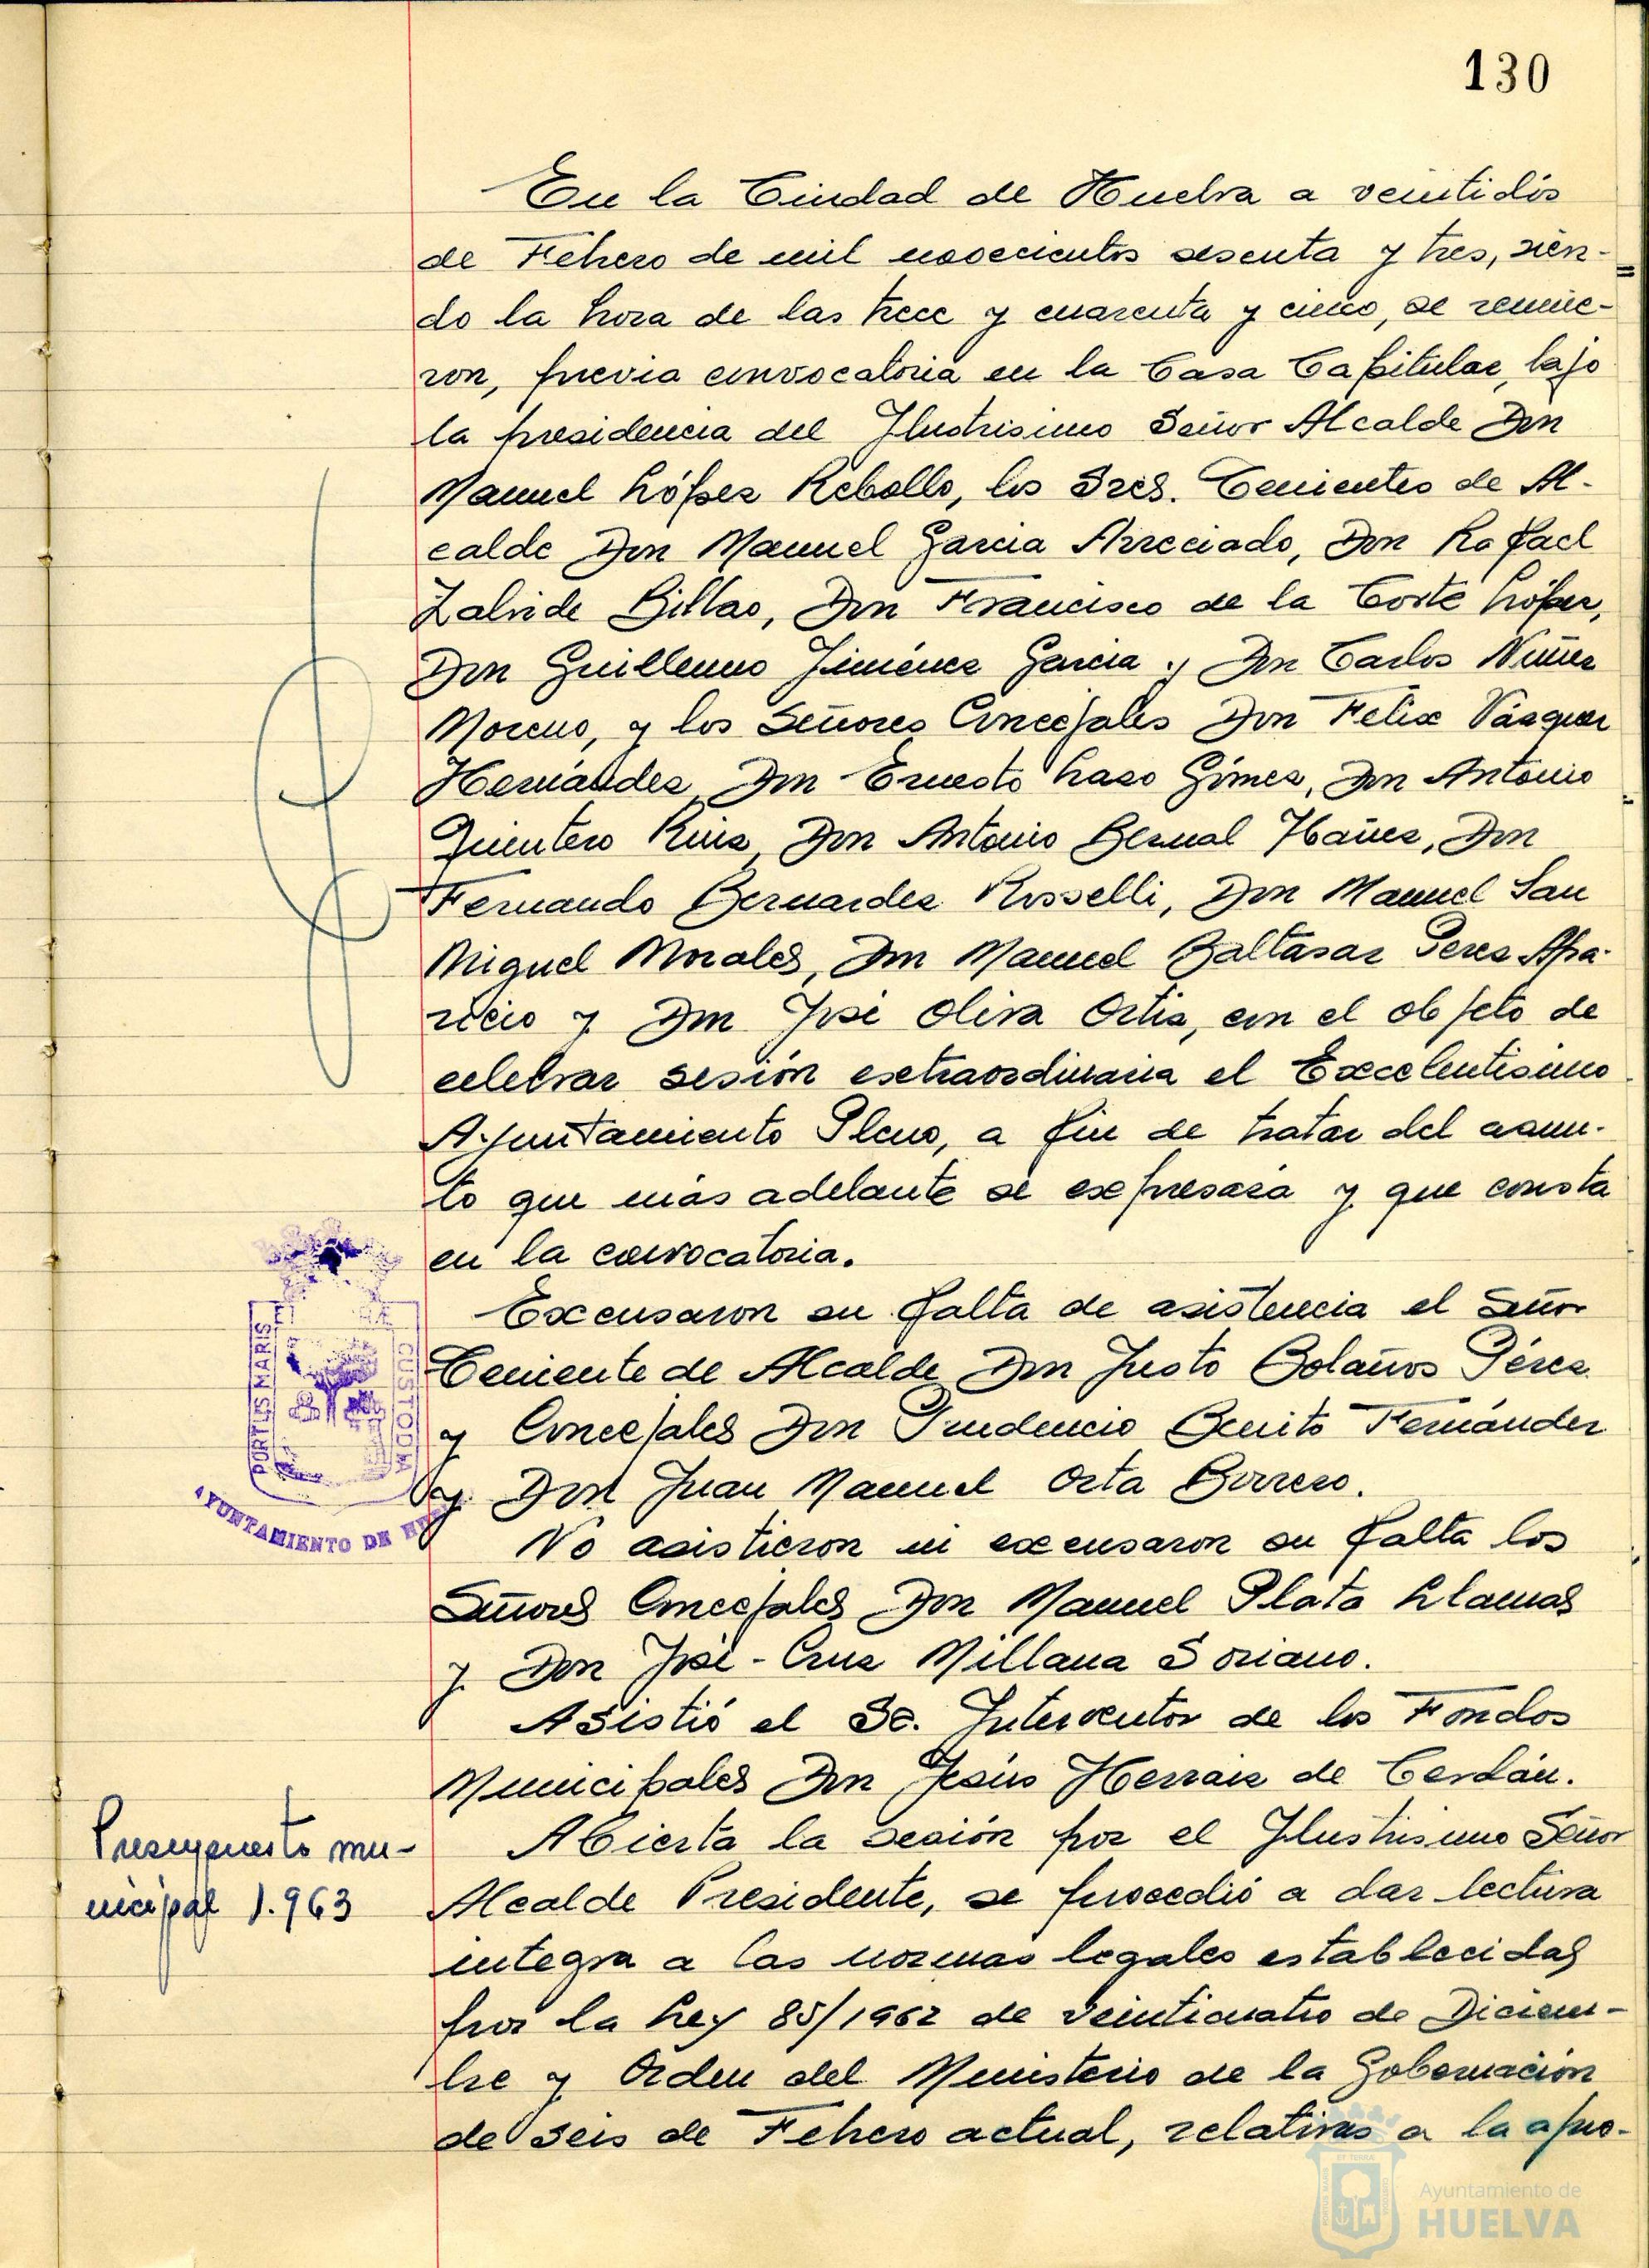 130
En la Ciudad de Huelva a veintidós
de Febrero de mil novecientos sesenta y tres, sien-
do la hora de las trece y cuarenta y cinco, se reunie-
ron, previa convocatoria en la Casa Capitular, bajo
la presidencia del Ilustrisimo Señor Alcalde Don
Manuel López Rebollo, los Sres. Tenientes de Al-
calde Don Manuel Garcia Arreciado, Don Rafael
Zalvide Bilbao, Don Francisco de la Corte López,
Don Guillermo Jiménez Garcia y Don Carlos Núñez
Moreno, y los Señores Concejales Don Felix Vázquez
Hernández, Don Ernesto Lazo Gómez, Don Antonio
Quintero Ruiz, Don Antonio Bernal Ibañez, Don
Fernando Bernardez Rosselli, Don Manuel San
Miguel Morales, Don Manuel Baltasar Perez Apa-
ricio y Don José Oliva Ortiz, con el objeto de
celebrar sesión extraordinaria el Excelentisimo
Ayuntamiento Pleno, a fin de tratar del asun-
to que más adelante se expresará y que consta
en la convocatoria.
Excusaron su falta de asistencia el Señor
Teniente de Alcalde Don Justo Bolaños Pérez
y Concejales Don Prudencio Benito Fernández
y Don Juan Manuel Orta Borrero.
No asistieron ni excusaron su falta los
Señores Concejales Don Manuel Plata Llamas
y Don José-Cruz Millana Soriano.
Asistió el Sr. Interventor de los Fondos
Municipales Don Jesús Herraiz de Cerdán.
Abierta la sesión por el Ilustrisimo Señor
Alcalde Presidente, se procedió a dar lectura
integra a las normas legales establecidas
por la Ley 85/1962 de veinticuatro de Diciem-
bre y Orden del Ministerio de la Gobernación
de seis de Febrero actual, relativas a la apro-
PORTUS MARIS ET
CUSTODIA
AYUNTAMIENTO DE
Presupuesto mu-
nicipal 1.963
Ayuntamiento de
HUELVA